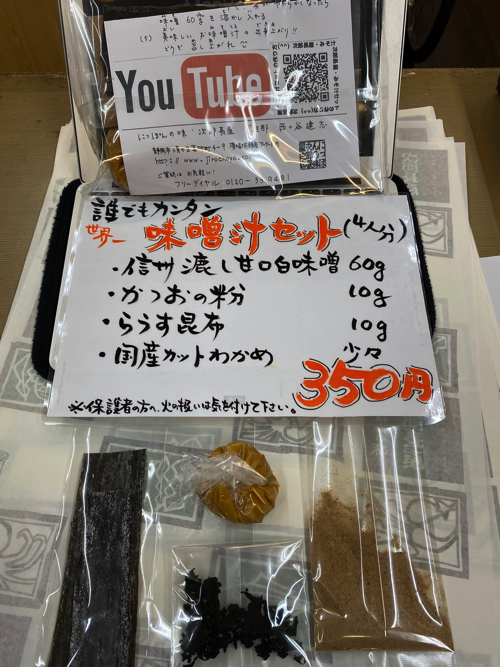 味噌60gを溶かし入れる
(5) 美味しいお味噌汁の出来上がり!!
どうぞ召し上がれ
YouTube
次郎長屋・みそ汁
にっぽんの味 次郎長屋
フリーダイヤル 0120-
誰でもカンタン
世界一 味噌汁セット(4人分)
・信州漉し甘口白味噌 60g
・かつおの粉 10g
・らうす昆布 10g
・国産カットわかめ 少々
350円
※保護者の方へ、火の扱いは気を付けて下さい。